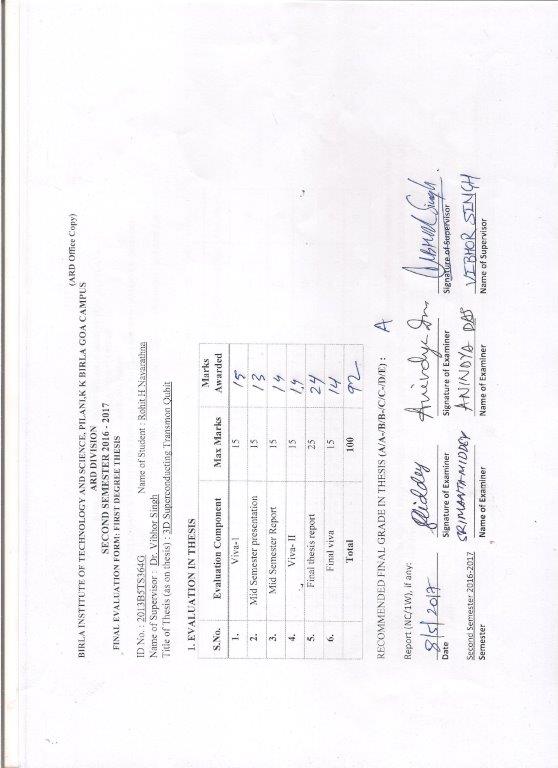 (ARD Office Copy)
BIRLA INSTITUTE OF TECHNOLOGY AND SCIENCE, PILANI,K K BIRLA GOA CAMPUS
ARD DIVISION
SECOND SEMESTER 2016 - 2017
FINAL EVALUATION FORM: FIRST DEGREE THESIS
ID No. : 2013B5TS364G Name of Student : Rohit H Navarathna
Name of Supervisor : Dr. Vibhor Singh
Title of Thesis (as on thesis) : 3D Superconducting Transmon Qubit
1. EVALUATION IN THESIS
S.No. Evaluation Component Max Marks Marks Awarded
1. Viva-1 15 15
2. Mid Semester presentation 15 13
3. Mid Semester Report 15 14
4. Viva- II 15 14
5. Final thesis report 25 24
6. Final viva 15 14
Total 100 92
RECOMMENDED FINAL GRADE IN THESIS (A/A-/B/B-/C/C-/D/E) : A
Report (NC/1W), if any:
8/5/2017 Anindya Das Vibhor Singh
Date Signature of Examiner Signature of Examiner Signature of Supervisor
SRIMANTA MIDDEY ANINDYA DAS VIBHOR SINGH
Second Semester 2016-2017
Semester Name of Examiner Name of Examiner Name of Supervisor